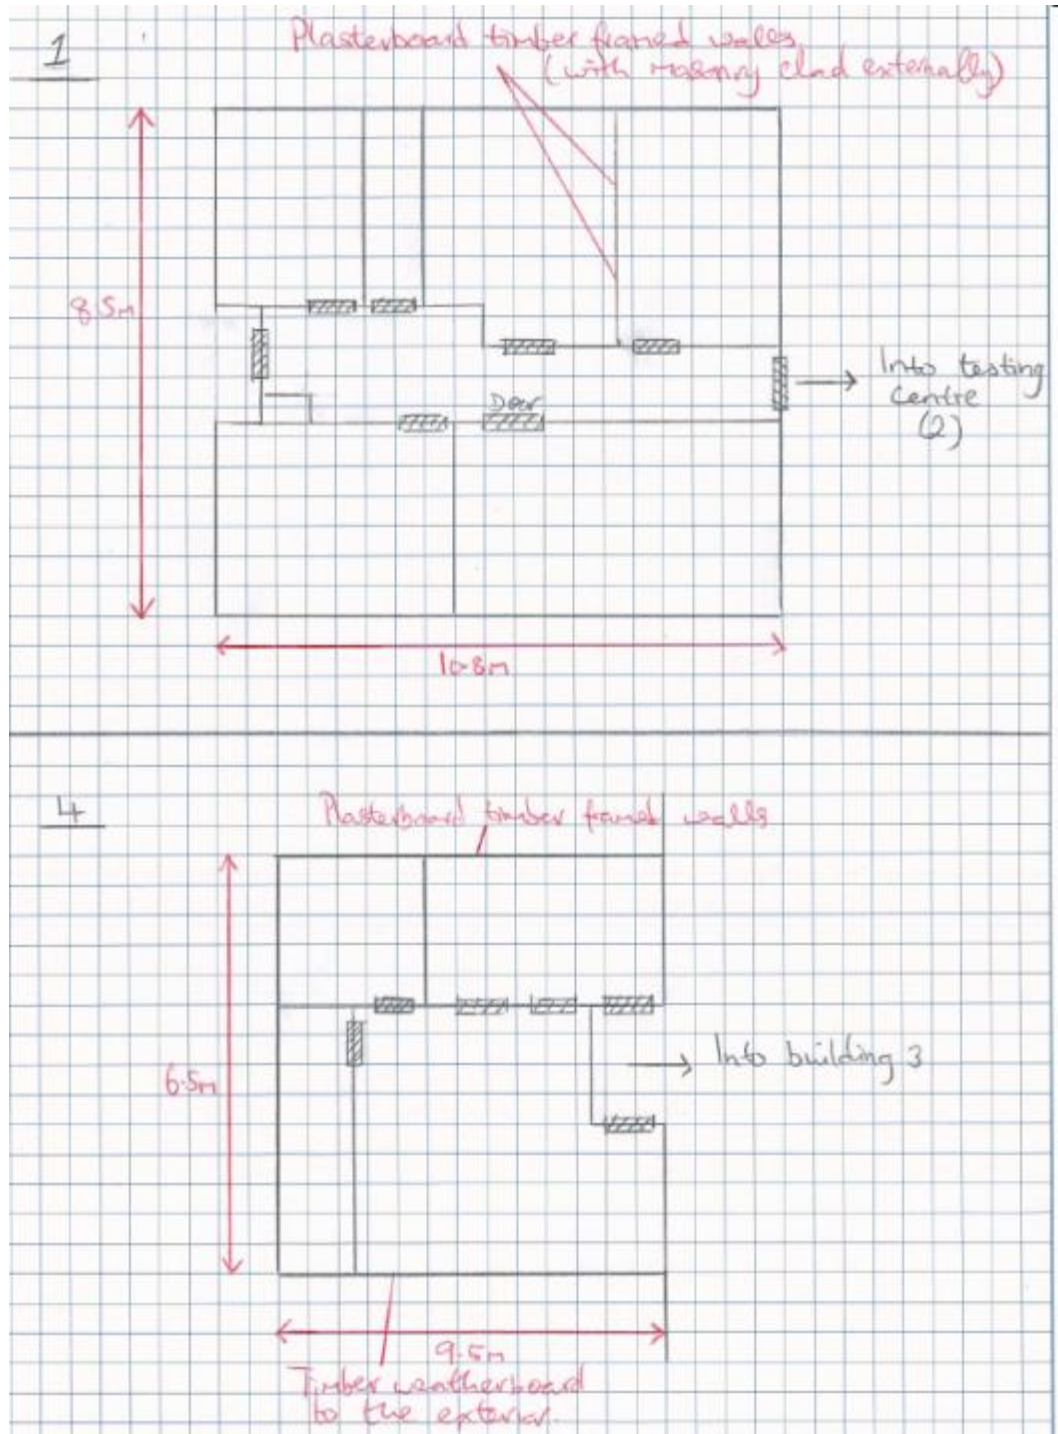 1
Plasterboard timber framed walls
(with masonry clad externally)
8.5m
Door
Into testing
Centre
(2)
10.8m
4
Plasterboard timber framed walls
6.5m
Into building 3
9.5m
Timber weatherboard
to the exterior.